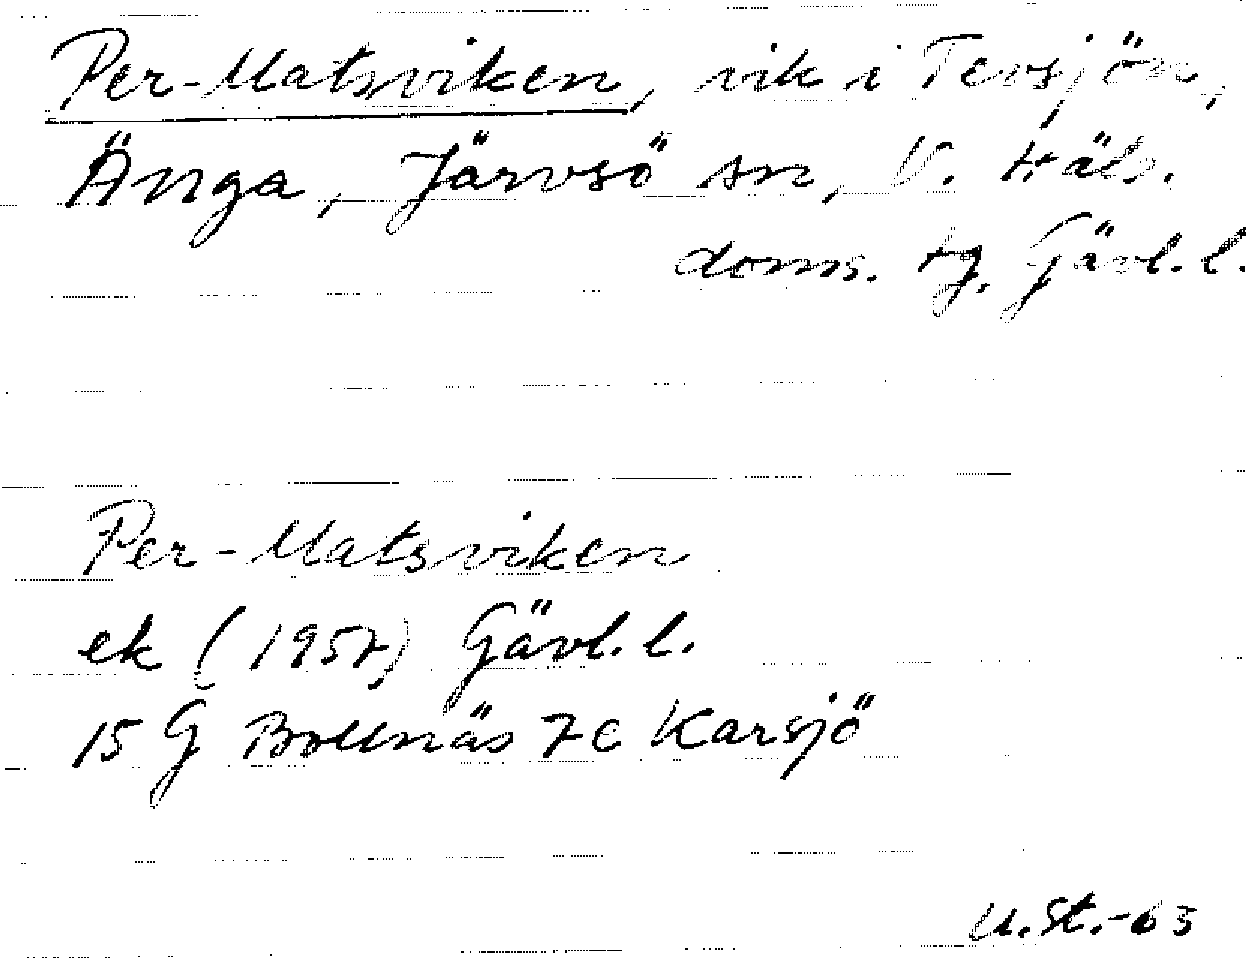 Per-Matsviken, vik i Tevsjön,
Änga, Järvsö sn, V. Häls.
doms. tg. Gävl. l.
Per-Matsviken
ek (1957) Gävl. l.
15 G Bollnäs 7c Karsjö
U.St.-63